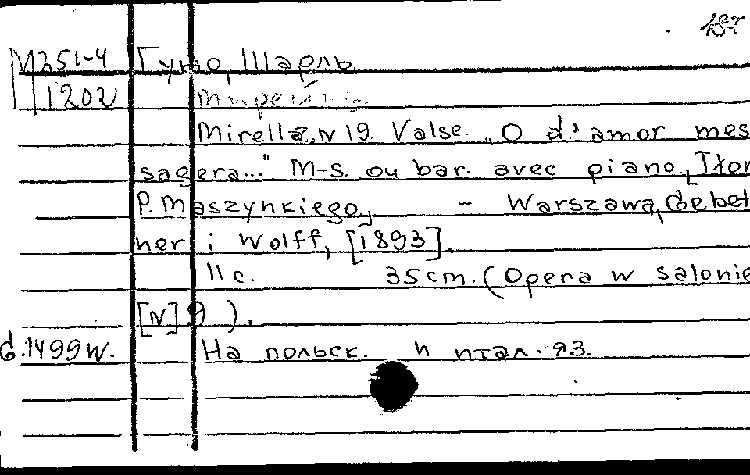 187
М251-4 Гуно, Шарль
1202 Мирейль.
Mirella, N 19. Valse. "O d'amor mes
sagera..." M-s. ou bar. avec piano, [Tłom
P. Maszynkiego, - Warszawa, Gebet
ner i Wolff, [1893].
11 c. 35cm. (Opera w salonie
[N] 9 ).
d.1499w. На польск. и итал. яз.